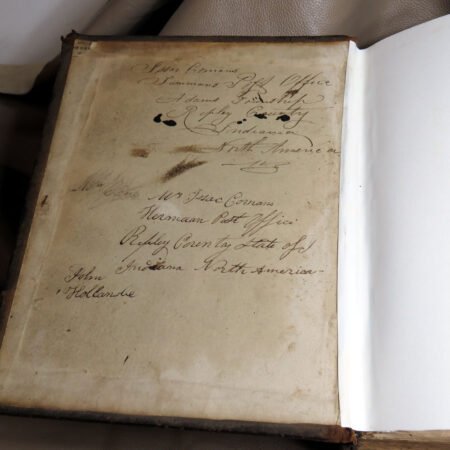 Isaac Comans
Summans Post Office
Adams Township
Ripley County
Indiania
North America
Mr Isaac Comans
Hermaan Post Offici
Ripley County State of I
Indiana North America
John
Hollande